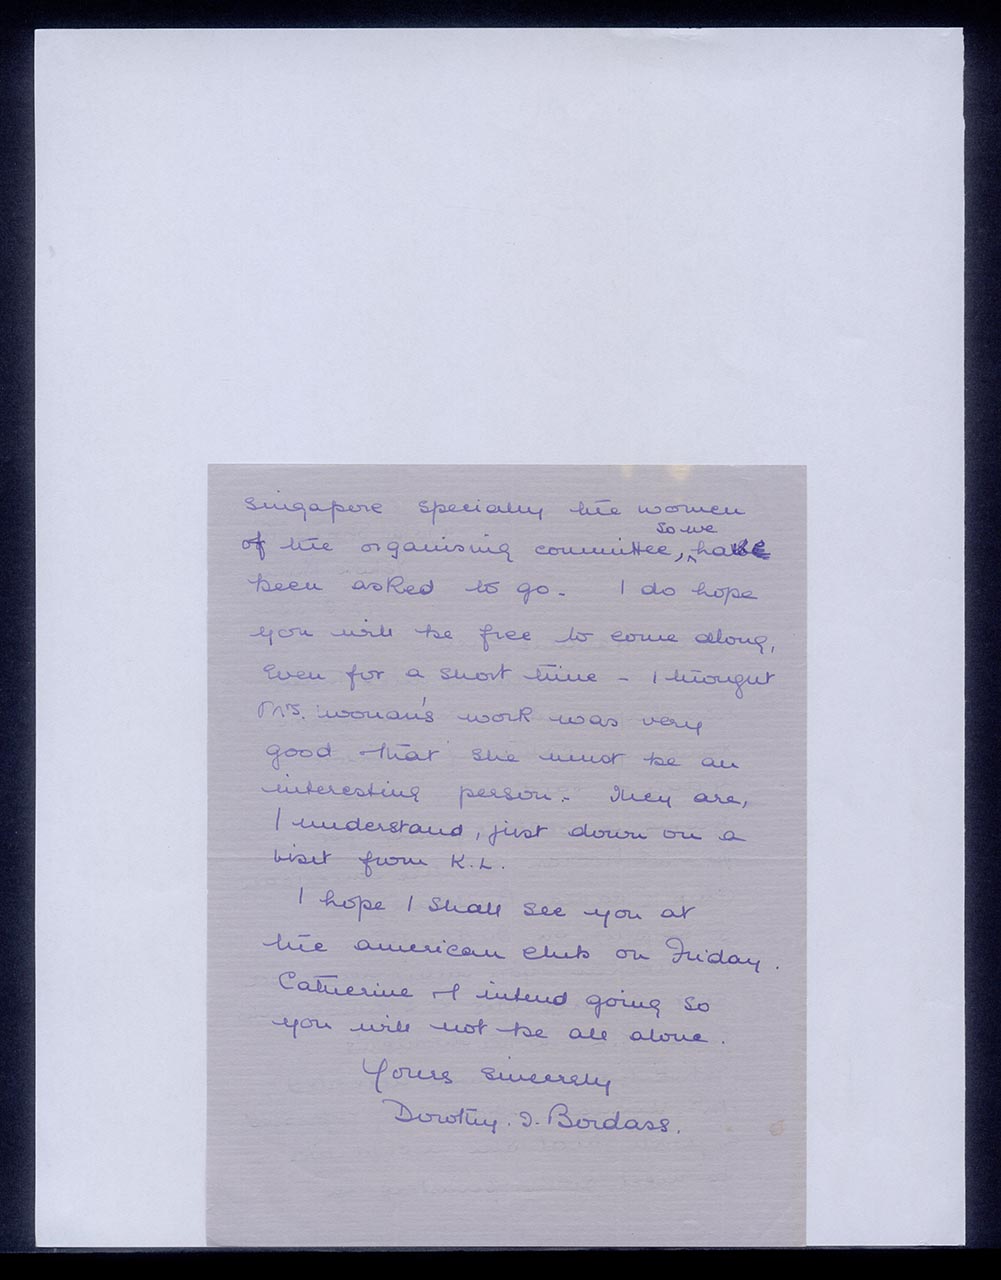 Singapore specially the women
of the organising committee, so we have
been asked to go. I do hope
you will be free to come along,
Even for a short time - I thought
Mrs. woman's work was very
good that she must be an
interesting person. They are,
I understand, just down on a
visit from K.L.
I hope I shall see you at
the american club on Friday.
Catherine & I intend going so
you will not be all alone.
Yours sincerely
Dorothy. I. Bordass.